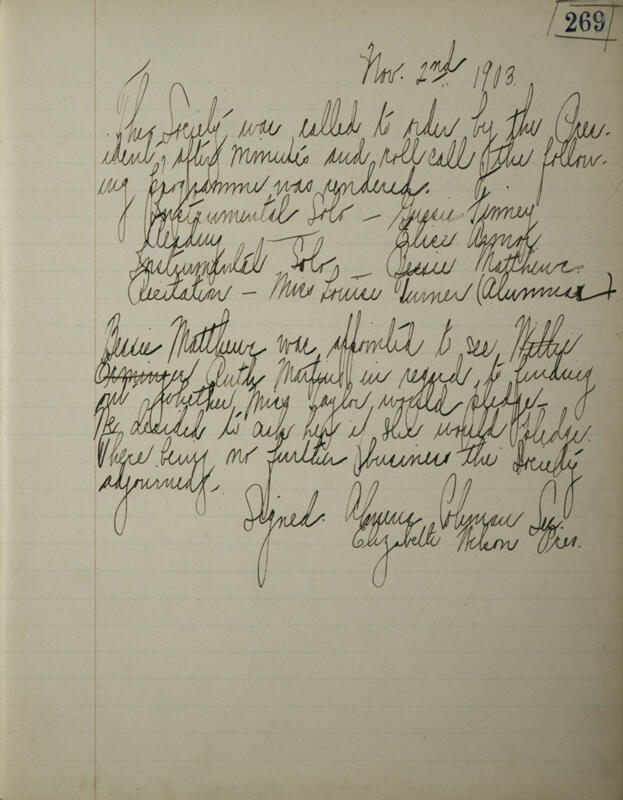 269
Nov. 2nd 1903.
The Society was called to order by the Pres-
ident, after minutes and roll call the follow-
ing programme was rendered.
Instrumental Solo — Gussie Tinney
Reading — Elice Armor
Instrumental Solo Bessie Matthews.
Recitation — Miss Louise Turner (Alumnae)
Bessie Matthews was appointed to see Willie
Ruth Martin, in regard to finding
out whether Miss Taylor would pledge.
We decided to ask her if she would pledge.
There being no further business the Society
adjourned.
Signed. Coleman Sec.
Elizabeth Wilson Pres.